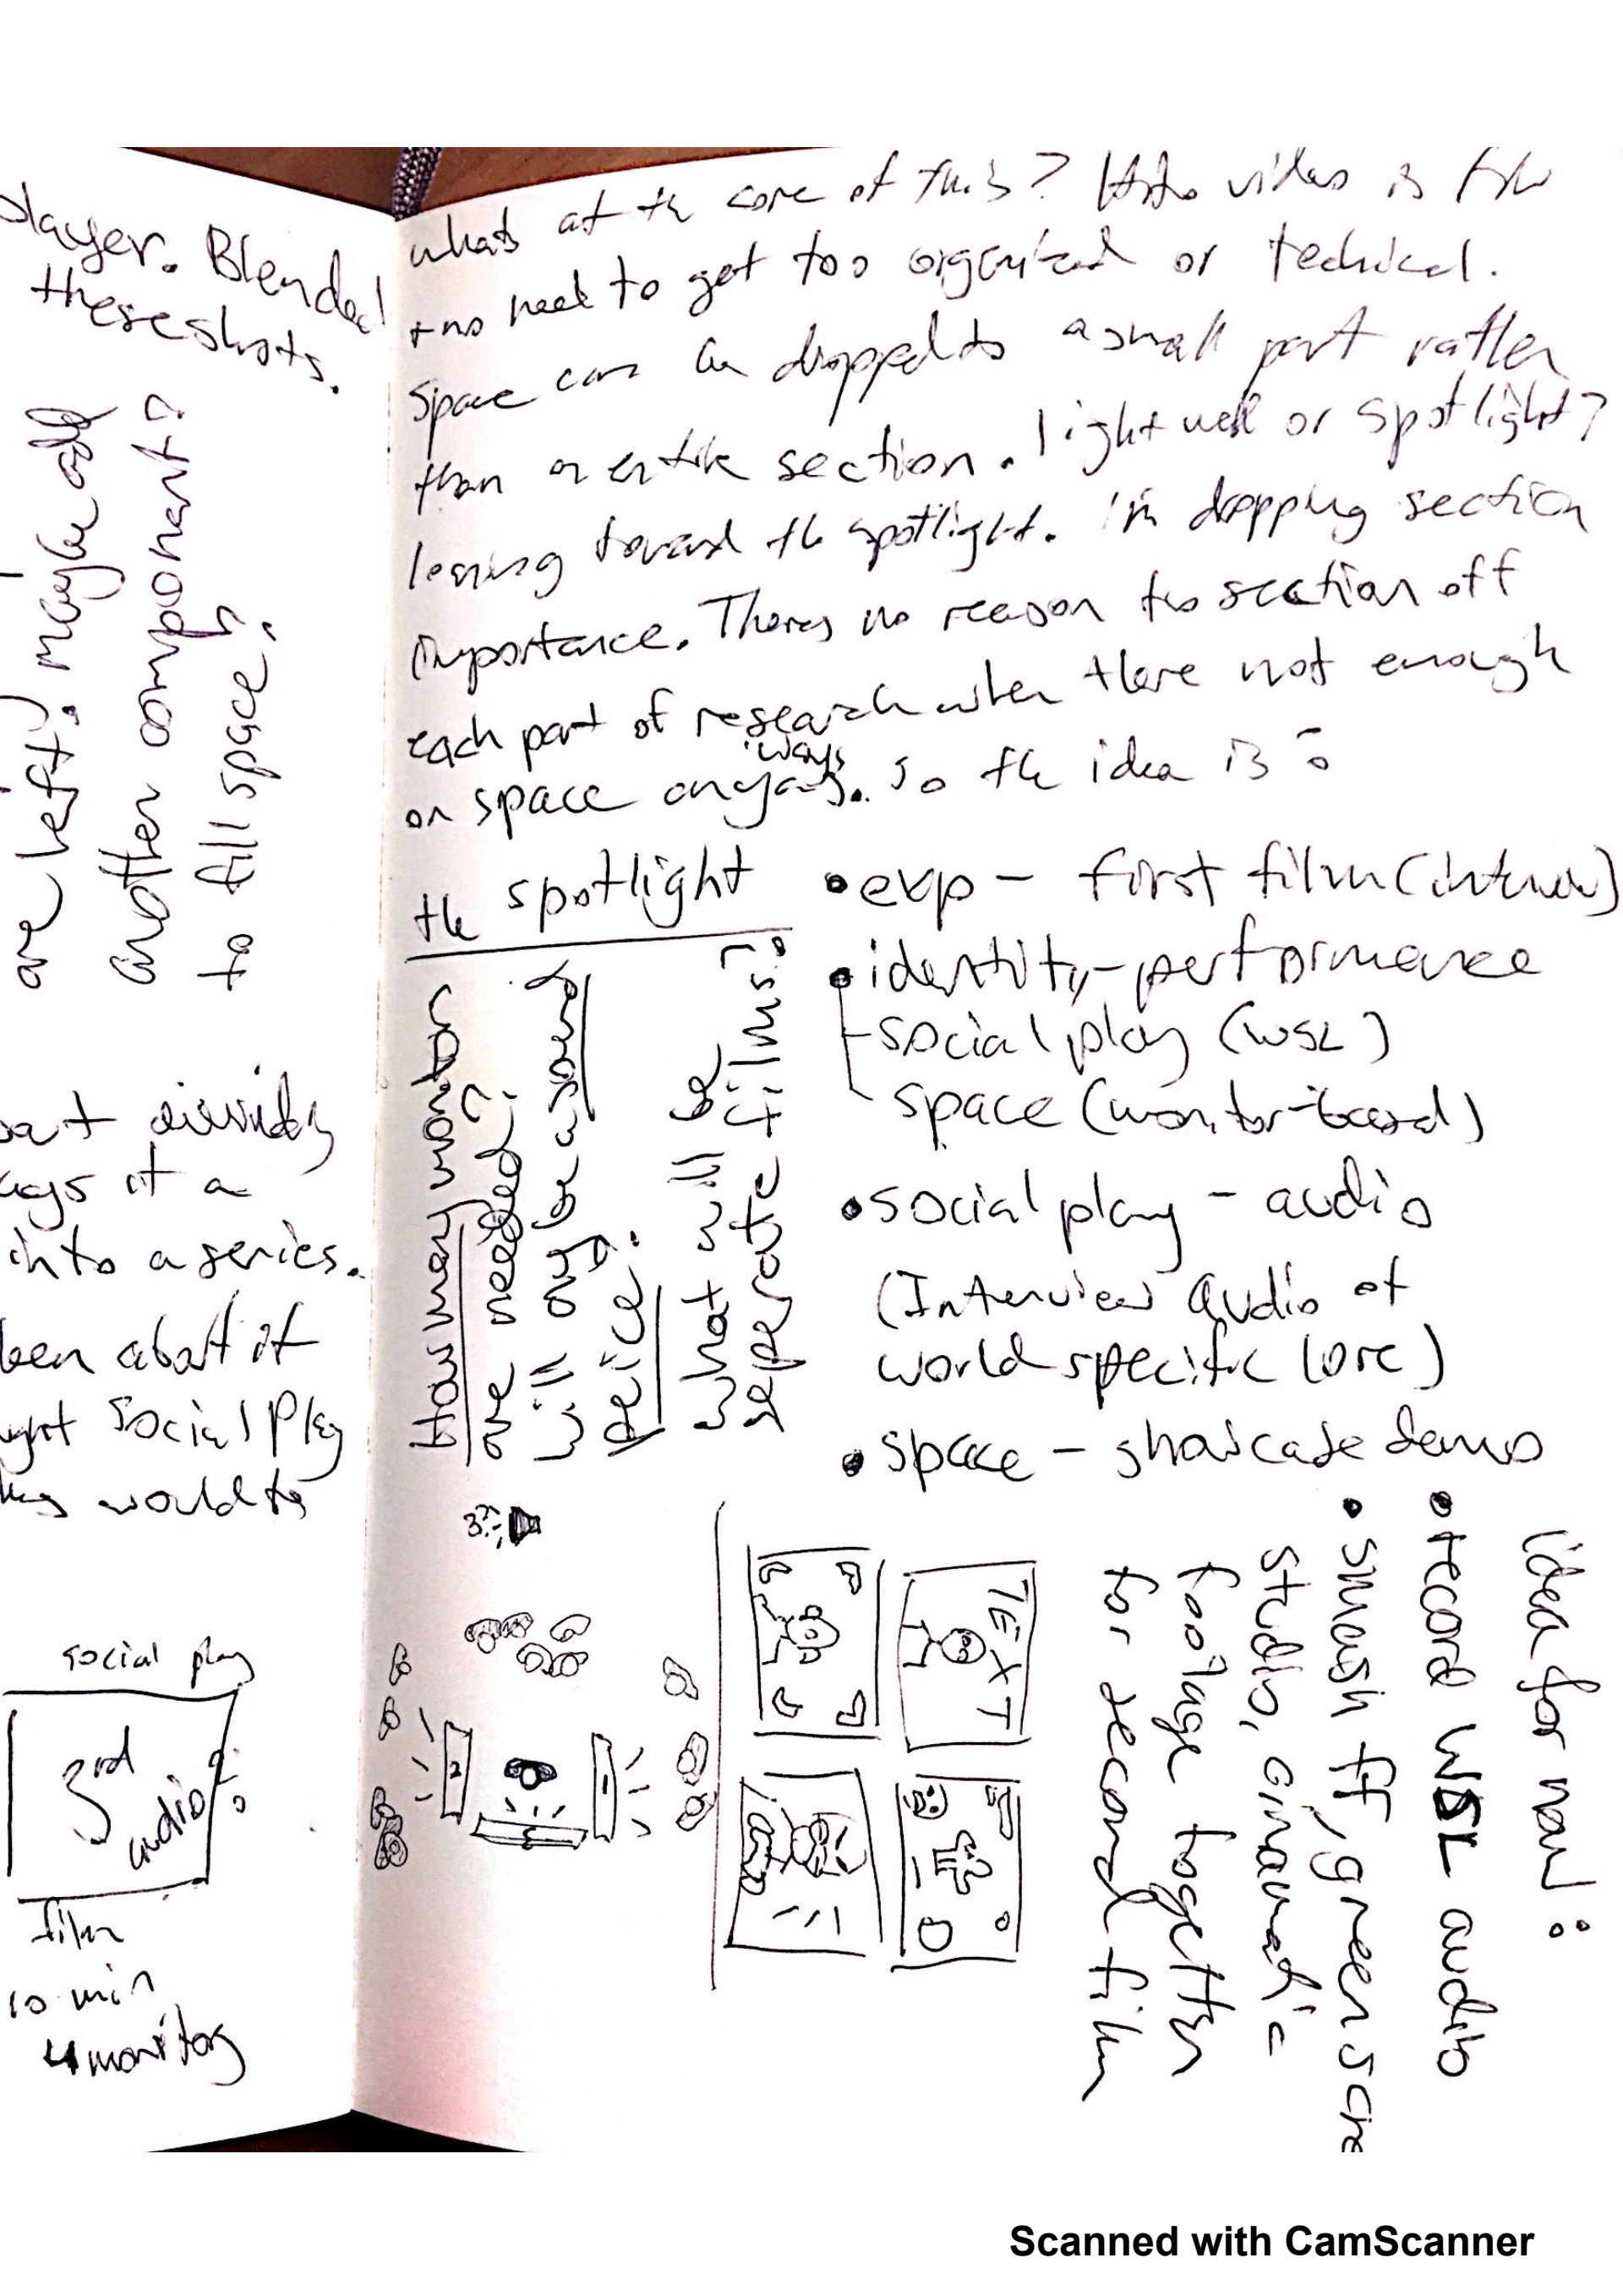 player. Blended
these shots.
are left. maybe add
another componant?
to fill space?
into a series.
been abot it
social play
would to
social play
3rd
audio
film
10 min
4 monitors
whats at the core of this? video is
+ no need to get too organized or techical.
space can be dropped to a small part rather
than an entire section. light well or spotlight?
leaning toward the spotlight. I'm dropping section
importance. Theres no reason to section off
each part of research when there not enough
on space anyways. so the idea is:
ways
the spotlight
How many monitors
are needed?
will any be a sound
peice?
what will be
seperate films?
• exp - first film (interview)
• identity-performance
- social play (WSL)
space (monitor-based)
• social play - audio
(Interview audio of
world specific lore)
• space - showcase demo
3?
2
1
TEXT
idea for now:
• record WSL audio
• smash ff, green scre
studio, cinamatic
footage together
for second film
Scanned with CamScanner